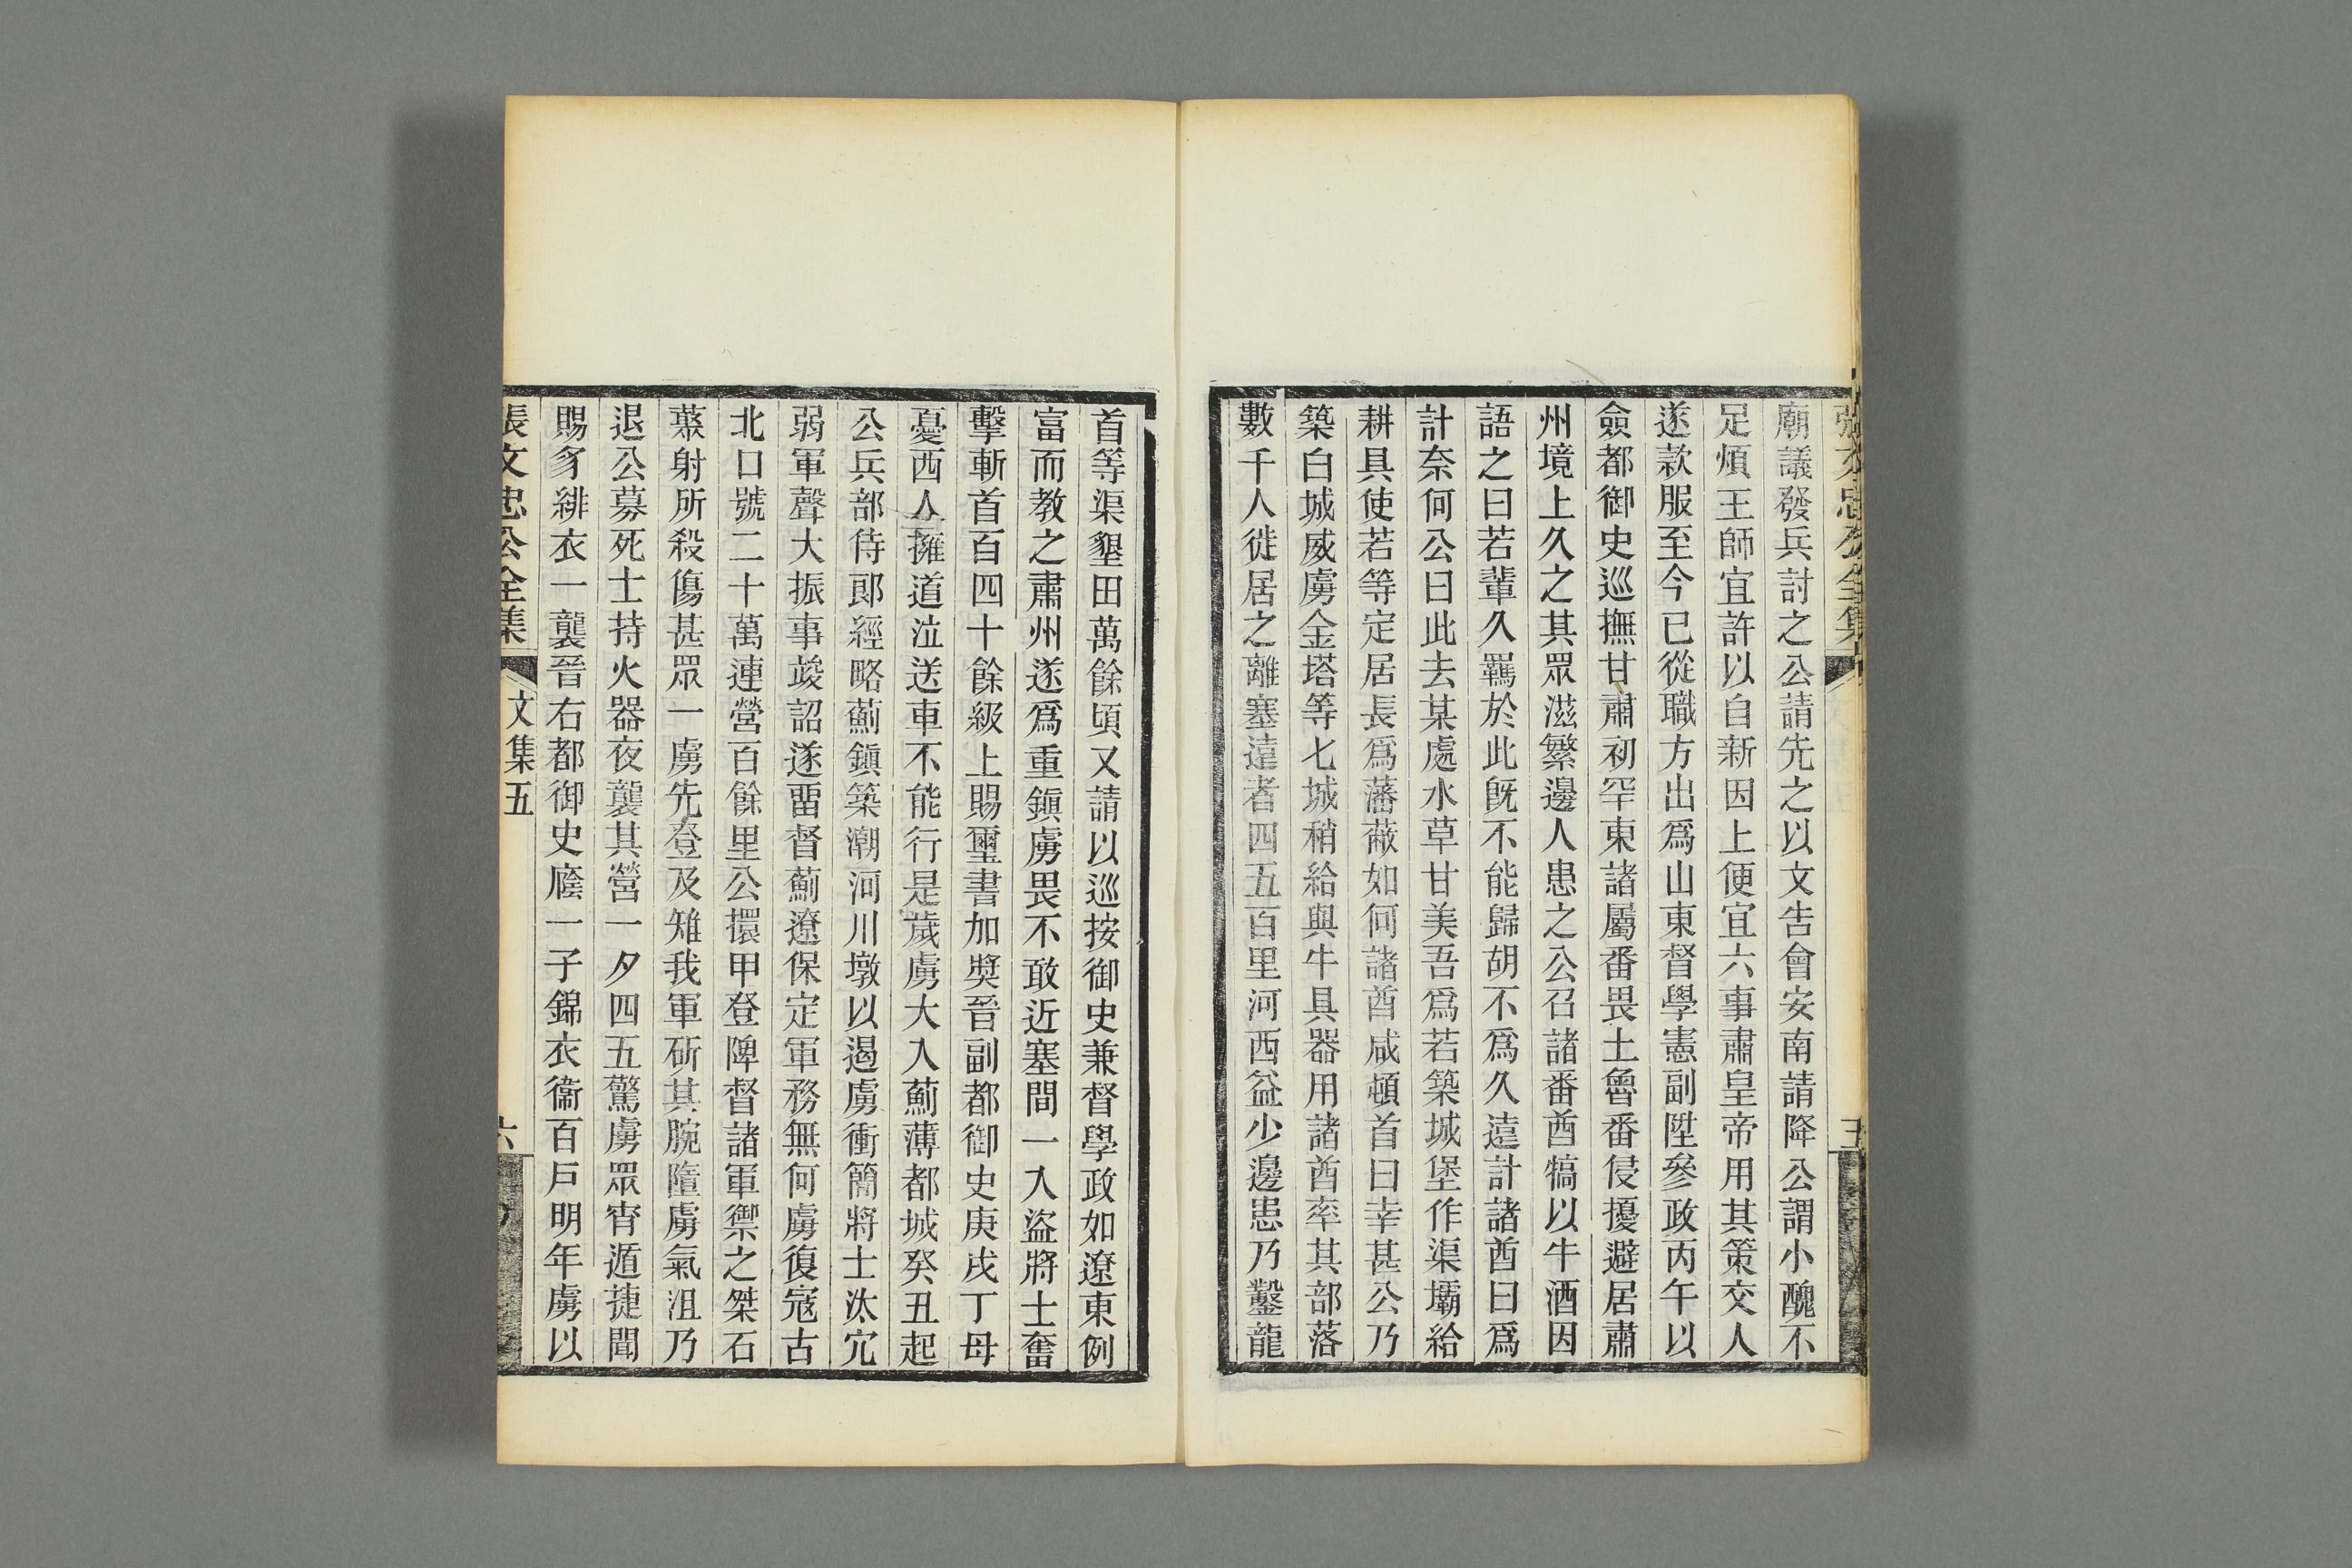 張文忠公全集
五
廟議發兵討之公請先之以文告會安南請降公謂小醜不
足煩王師宜許以自新因上便宜六事肅皇帝用其策交人
遂款服至今已從職方出爲山東督學憲副陞參政丙午以
僉都御史巡撫甘肅初罕東諸屬番畏土魯番侵擾避居肅
州境上久之其眾滋繁邊人患之公召諸番酋犒以牛酒因
語之曰若輩久羈於此旣不能歸胡不爲久遠計諸酋曰爲
計奈何公曰此去某處水草甘美吾爲若築城堡作渠壩給
耕具使若等定居長爲藩蔽如何諸酋咸頓首曰幸甚公乃
築白城威虜金塔等七城稍給與牛具器用諸酋率其部落
數千人徙居之離塞遠者四五百里河西益少邊患乃鑿龍
首等渠墾田萬餘頃又請以巡按御史兼督學政如遼東例
富而教之肅州遂爲重鎭虜畏不敢近塞間一入盜將士奮
擊斬首百四十餘級上賜璽書加獎晉副都御史庚戌丁母
憂西人擁道泣送車不能行是歲虜大入薊薄都城癸丑起
公兵部侍郎經略薊鎭築潮河川墩以遏虜衝簡將士汰宂
弱軍聲大振事竣詔遂畱督薊遼保定軍務無何虜復寇古
北口號二十萬連營百餘里公擐甲登陴督諸軍禦之桀石
藂射所殺傷甚眾一虜先登及雉我軍斫其腕墮虜氣沮乃
退公募死士持火器夜襲其營一夕四五驚虜眾宵遁捷聞
賜豸緋衣一襲晉右都御史廕一子錦衣衞百戶明年虜以
張文忠公全集
文集五
六